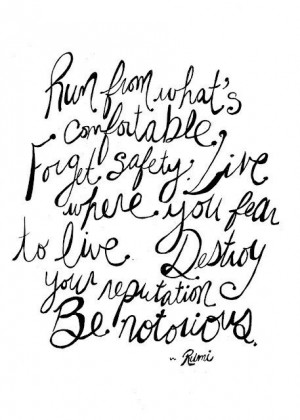 Run from what's
comfortable.
Forget safety. Live
where you fear
to live. Destroy
your reputation
Be notorious.
~ Rumi